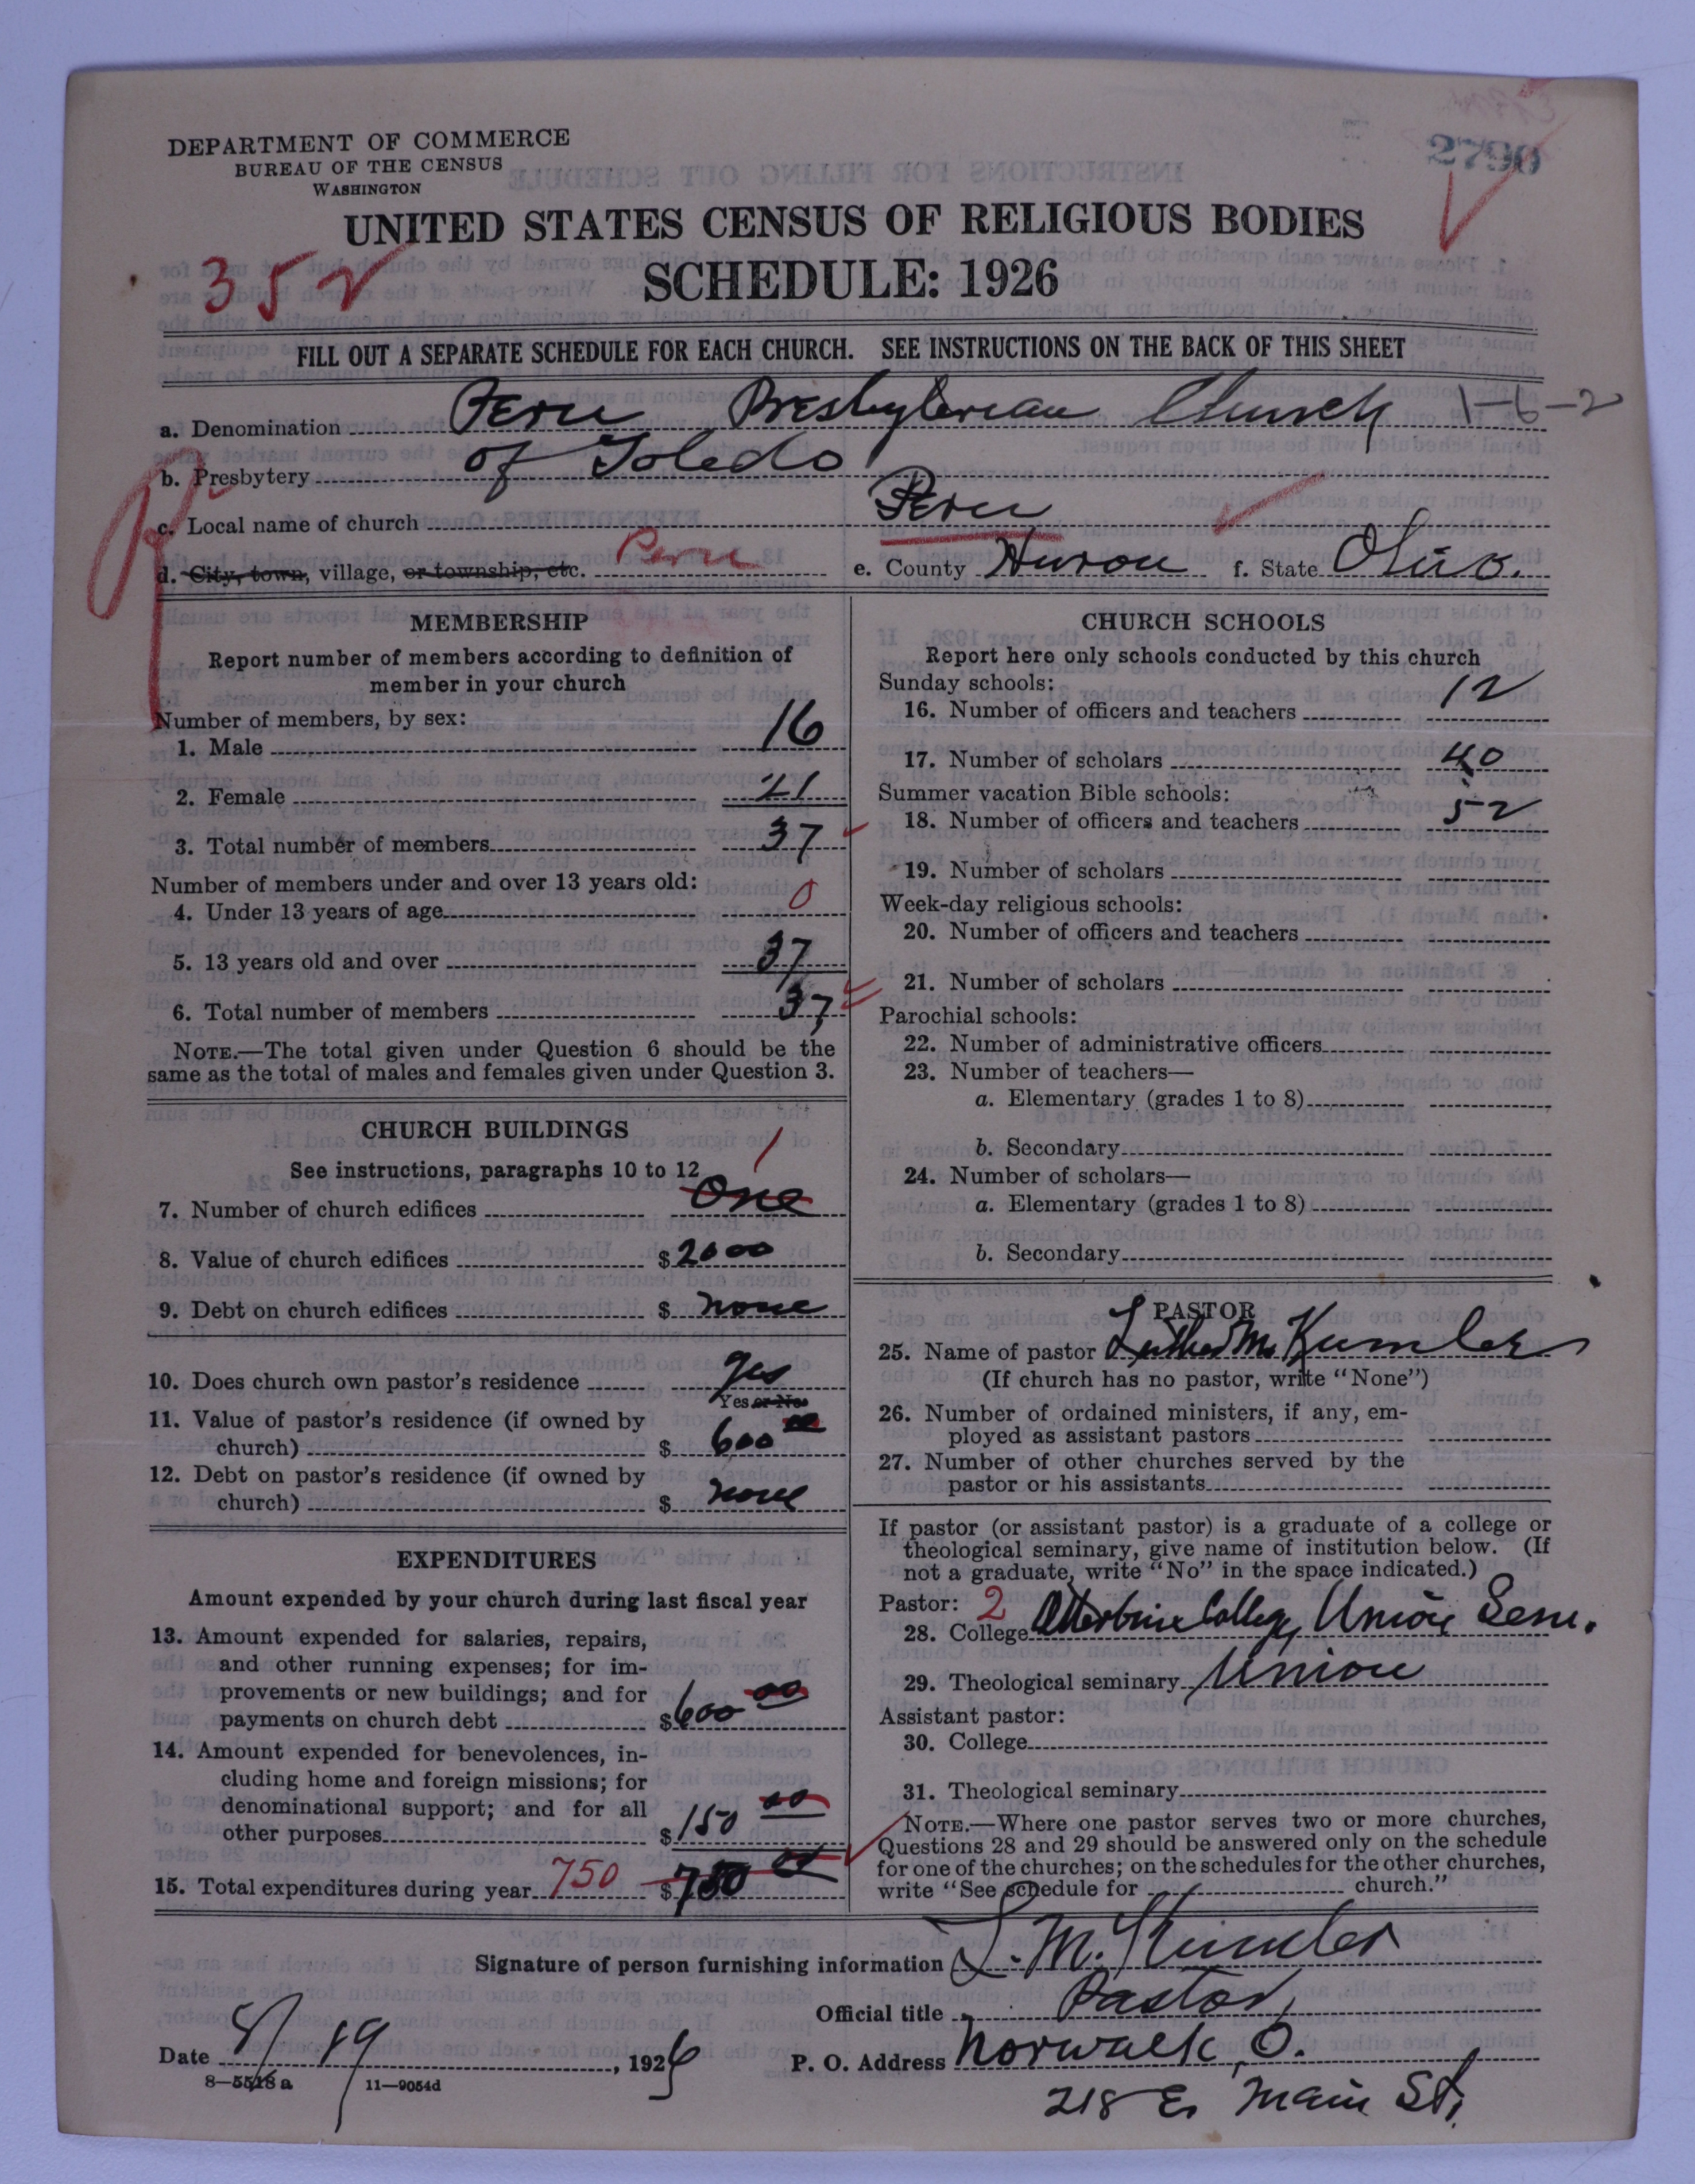 DEPARTMENT OF COMMERCE
BUREAU OF THE CENSUS
WASHINGTON
2790
UNITED STATES CENSUS OF RELIGIOUS BODIES
352
SCHEDULE: 1926
FILL OUT A SEPARATE SCHEDULE FOR EACH CHURCH. SEE INSTRUCTIONS ON THE BACK OF THIS SHEET
a. Denomination Peru Presbyterian Church 1-6-2
b. Presbytery of Toledo
c. Local name of church Peru
d. City, town, village, or township, etc. Peru e. County Huron f. State Ohio.
MEMBERSHIP
Report number of members according to definition of
member in your church
Number of members, by sex:
1. Male 16
2. Female 21
3. Total number of members 37
Number of members under and over 13 years old:
4. Under 13 years of age 0
5. 13 years old and over 37
6. Total number of members 37
NOTE.—The total given under Question 6 should be the
same as the total of males and females given under Question 3.
CHURCH BUILDINGS
See instructions, paragraphs 10 to 12
1
7. Number of church edifices One
8. Value of church edifices $ 2000
9. Debt on church edifices $ none
10. Does church own pastor's residence yes
Yes or No
11. Value of pastor's residence (if owned by
church) $ 600 00
12. Debt on pastor's residence (if owned by
church) $ none
EXPENDITURES
Amount expended by your church during last fiscal year
13. Amount expended for salaries, repairs,
and other running expenses; for im-
provements or new buildings; and for
payments on church debt $ 600 00
14. Amount expended for benevolences, in-
cluding home and foreign missions; for
denominational support; and for all
other purposes $ 150 00
15. Total expenditures during year 750 $ 750 00
CHURCH SCHOOLS
Report here only schools conducted by this church
Sunday schools:
16. Number of officers and teachers 12
17. Number of scholars 40
Summer vacation Bible schools:
18. Number of officers and teachers 52
19. Number of scholars
Week-day religious schools:
20. Number of officers and teachers
21. Number of scholars
Parochial schools:
22. Number of administrative officers
23. Number of teachers—
a. Elementary (grades 1 to 8)
b. Secondary
24. Number of scholars—
a. Elementary (grades 1 to 8)
b. Secondary
PASTOR
25. Name of pastor Luther M. Kumler
(If church has no pastor, write "None")
26. Number of ordained ministers, if any, em-
ployed as assistant pastors
27. Number of other churches served by the
pastor or his assistants
If pastor (or assistant pastor) is a graduate of a college or
theological seminary, give name of institution below. (If
not a graduate, write "No" in the space indicated.)
Pastor: 2
28. College Otterbine College, Union Sem.
29. Theological seminary Union
Assistant pastor:
30. College
31. Theological seminary
NOTE.—Where one pastor serves two or more churches,
Questions 28 and 29 should be answered only on the schedule
for one of the churches; on the schedules for the other churches,
write "See schedule for church."
Signature of person furnishing information L. M. Kumler
Official title Pastor,
Date 8/19, 1926 P. O. Address Norwalk, O.
8—5518 a 11—9054d
218 E. Main St.